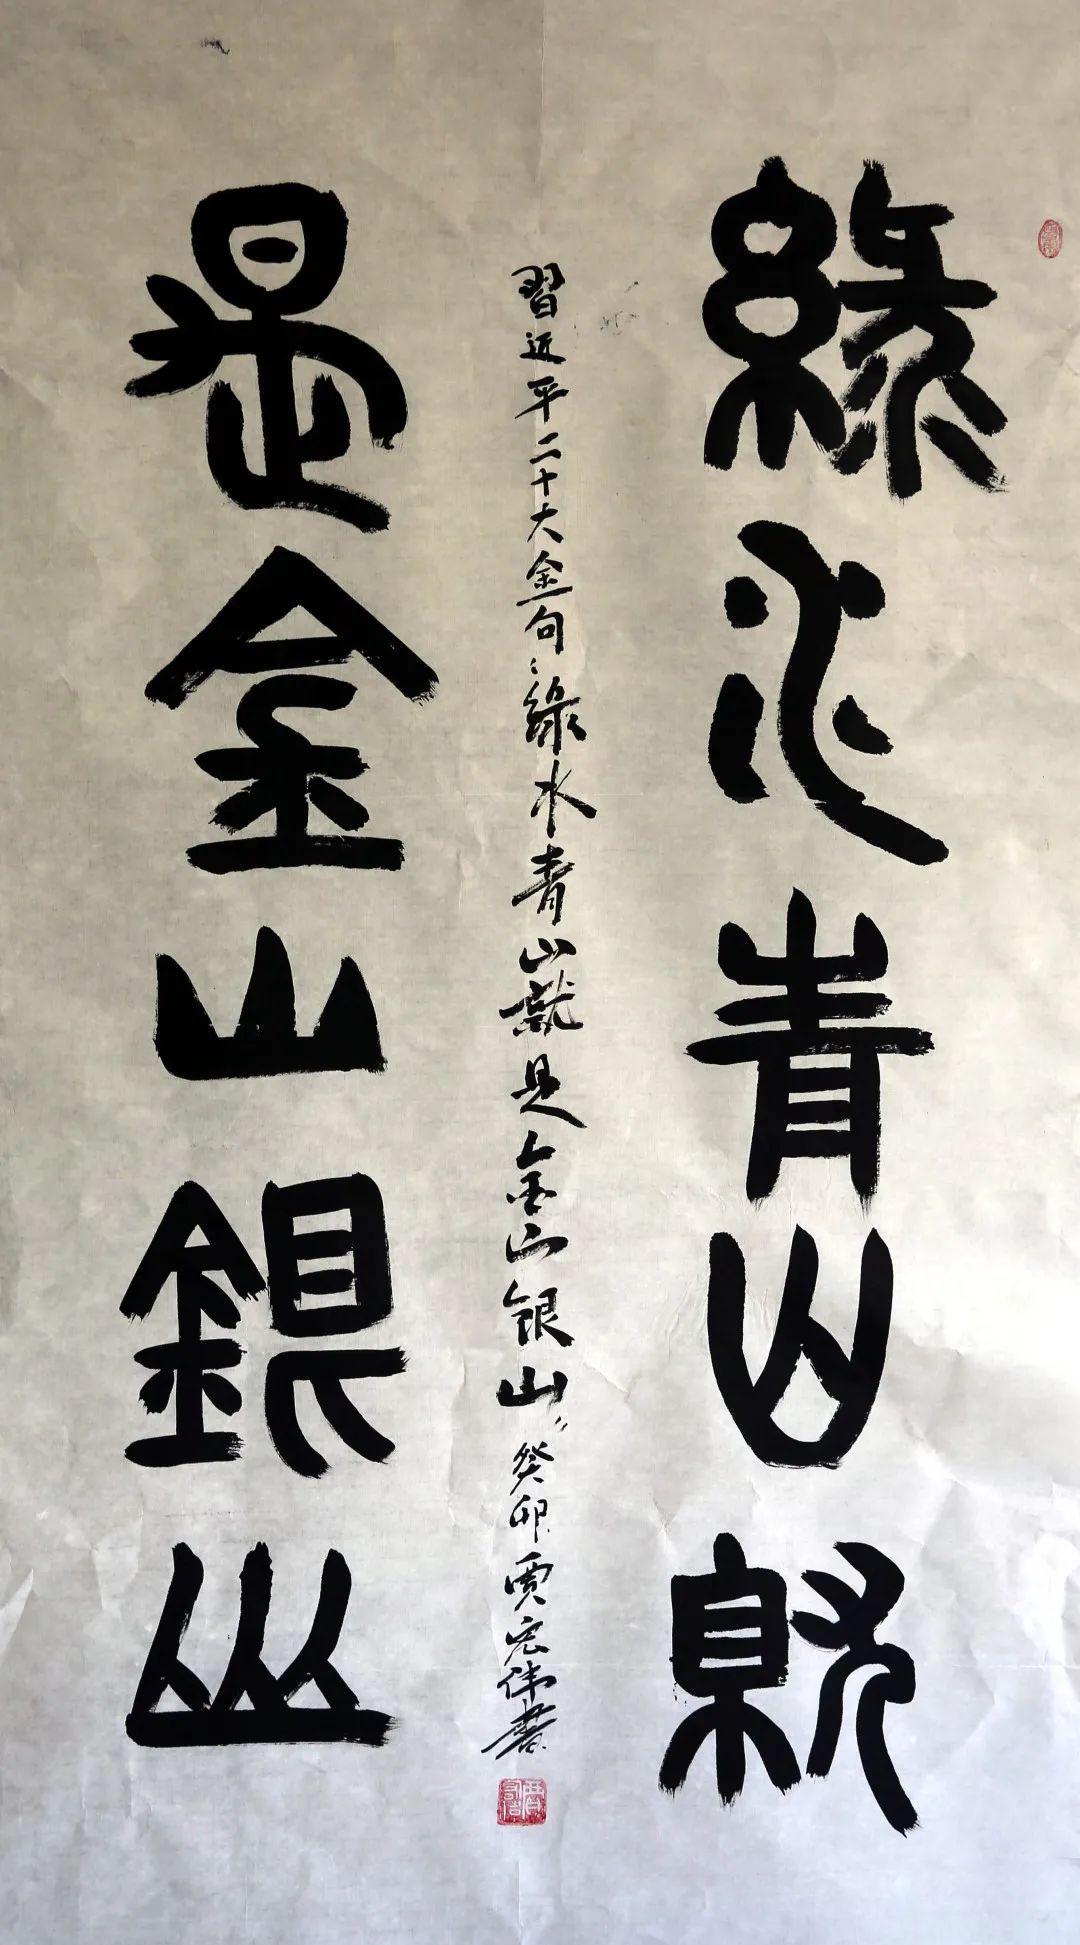 綠水青山就
習近平二十大金句：綠水青山就是金山銀山〃癸卯賈宏伟書
是金山銀山